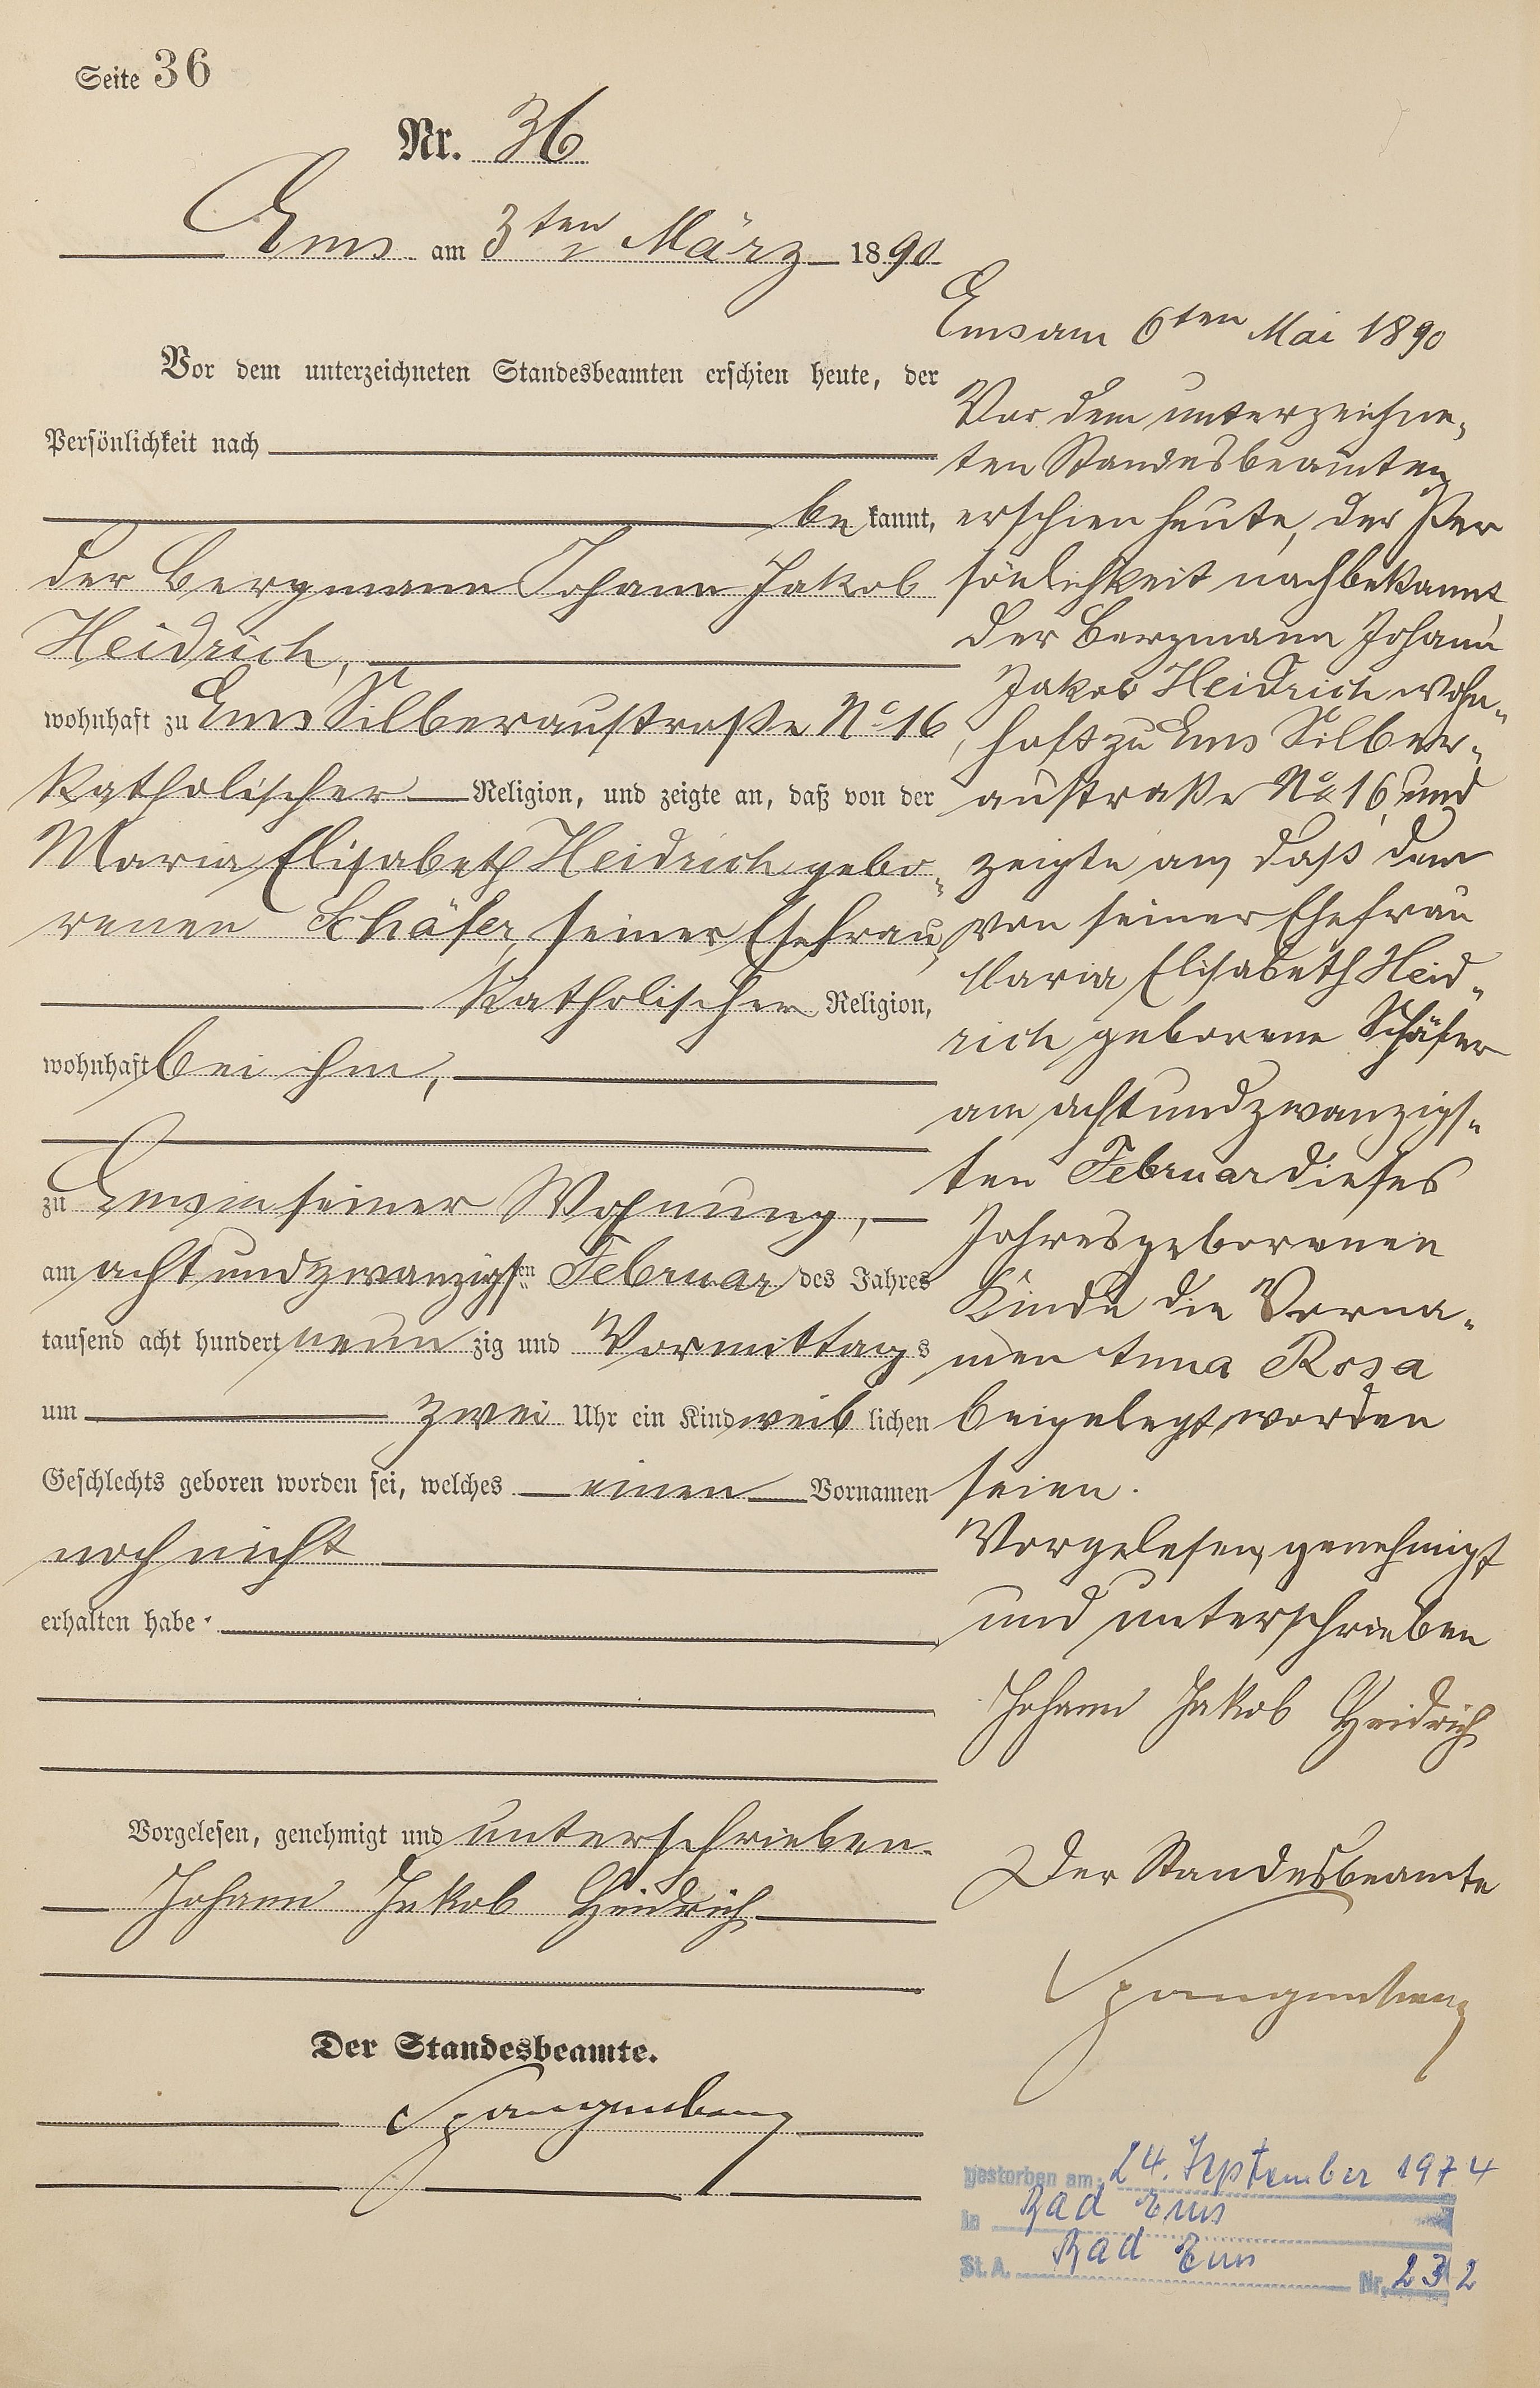 Seite 36
Nr. 36
Ems am 3ten März 1890
Vor dem unterzeichneten Standesbeamten erschien heute, der
Persönlichkeit nach
be kannt,
der Bergmann Johann Jakob
Heidrich,
wohnhaft zu Ems Silberaustraße No 16,
katholischer Religion, und zeigte an, daß von der
Maria Elisabeth Heidrich gebo-
renen Schäfer, seiner Ehefrau,
katholischer Religion,
wohnhaft bei ihm,
zu Ems in seiner Wohnung,
am acht und zwanzigsten Februar des Jahres
tausend acht hundert neun zig und Vormittags
um zwei Uhr ein Kind weib lichen
Geschlechts geboren worden sei, welches einen Vornamen
noch nicht
erhalten habe.
Vorgelesen, genehmigt und unterschrieben.
Johann Jakob Heidrich
Der Standesbeamte.
Spangenberg
Ems am 6ten Mai 1890
Vor dem unterzeichne-
ten Standesbeamten
erschien heute, der Per
sönlichkeit nach bekannt,
der Bergmann Johann
Jakob Heidrich wohn-
haft zu Ems Silber-
austraße No 16, und
zeigte an, daß dem
von seiner Ehefrau
Maria Elisabeth Heid-
rich geborene Schäfer
am achtundzwanzigs-
ten Februar dieses
Jahres geborenen
Kinde die Vorna-
men Anna Rosa
beigelegt worden
seien.
Vorgelesen, genehmigt
und unterschrieben
Johann Jakob Heidrich
Der Standesbeamte
Spangenberg
gestorben am: 24. September 1974
in Bad Ems
St. A. Bad Ems Nr. 232